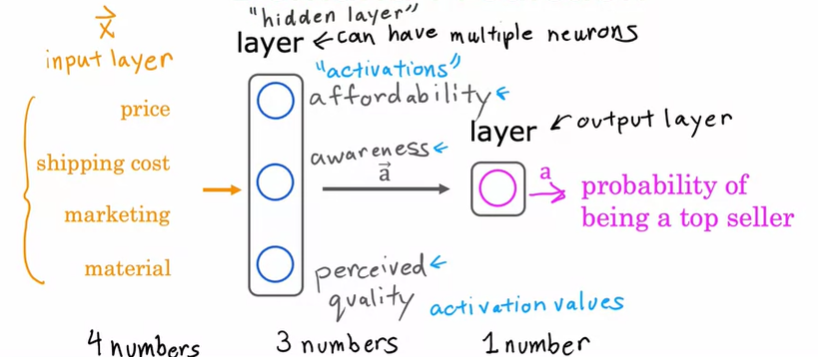 x⃗
input layer
price
shipping cost
marketing
material
4 numbers
"hidden layer"
layer ← can have multiple neurons
"activations"
affordability ←
awareness ←
a⃗
perceived ←
quality
3 numbers
layer ← output layer
a
probability of
being a top seller
activation values
1 number